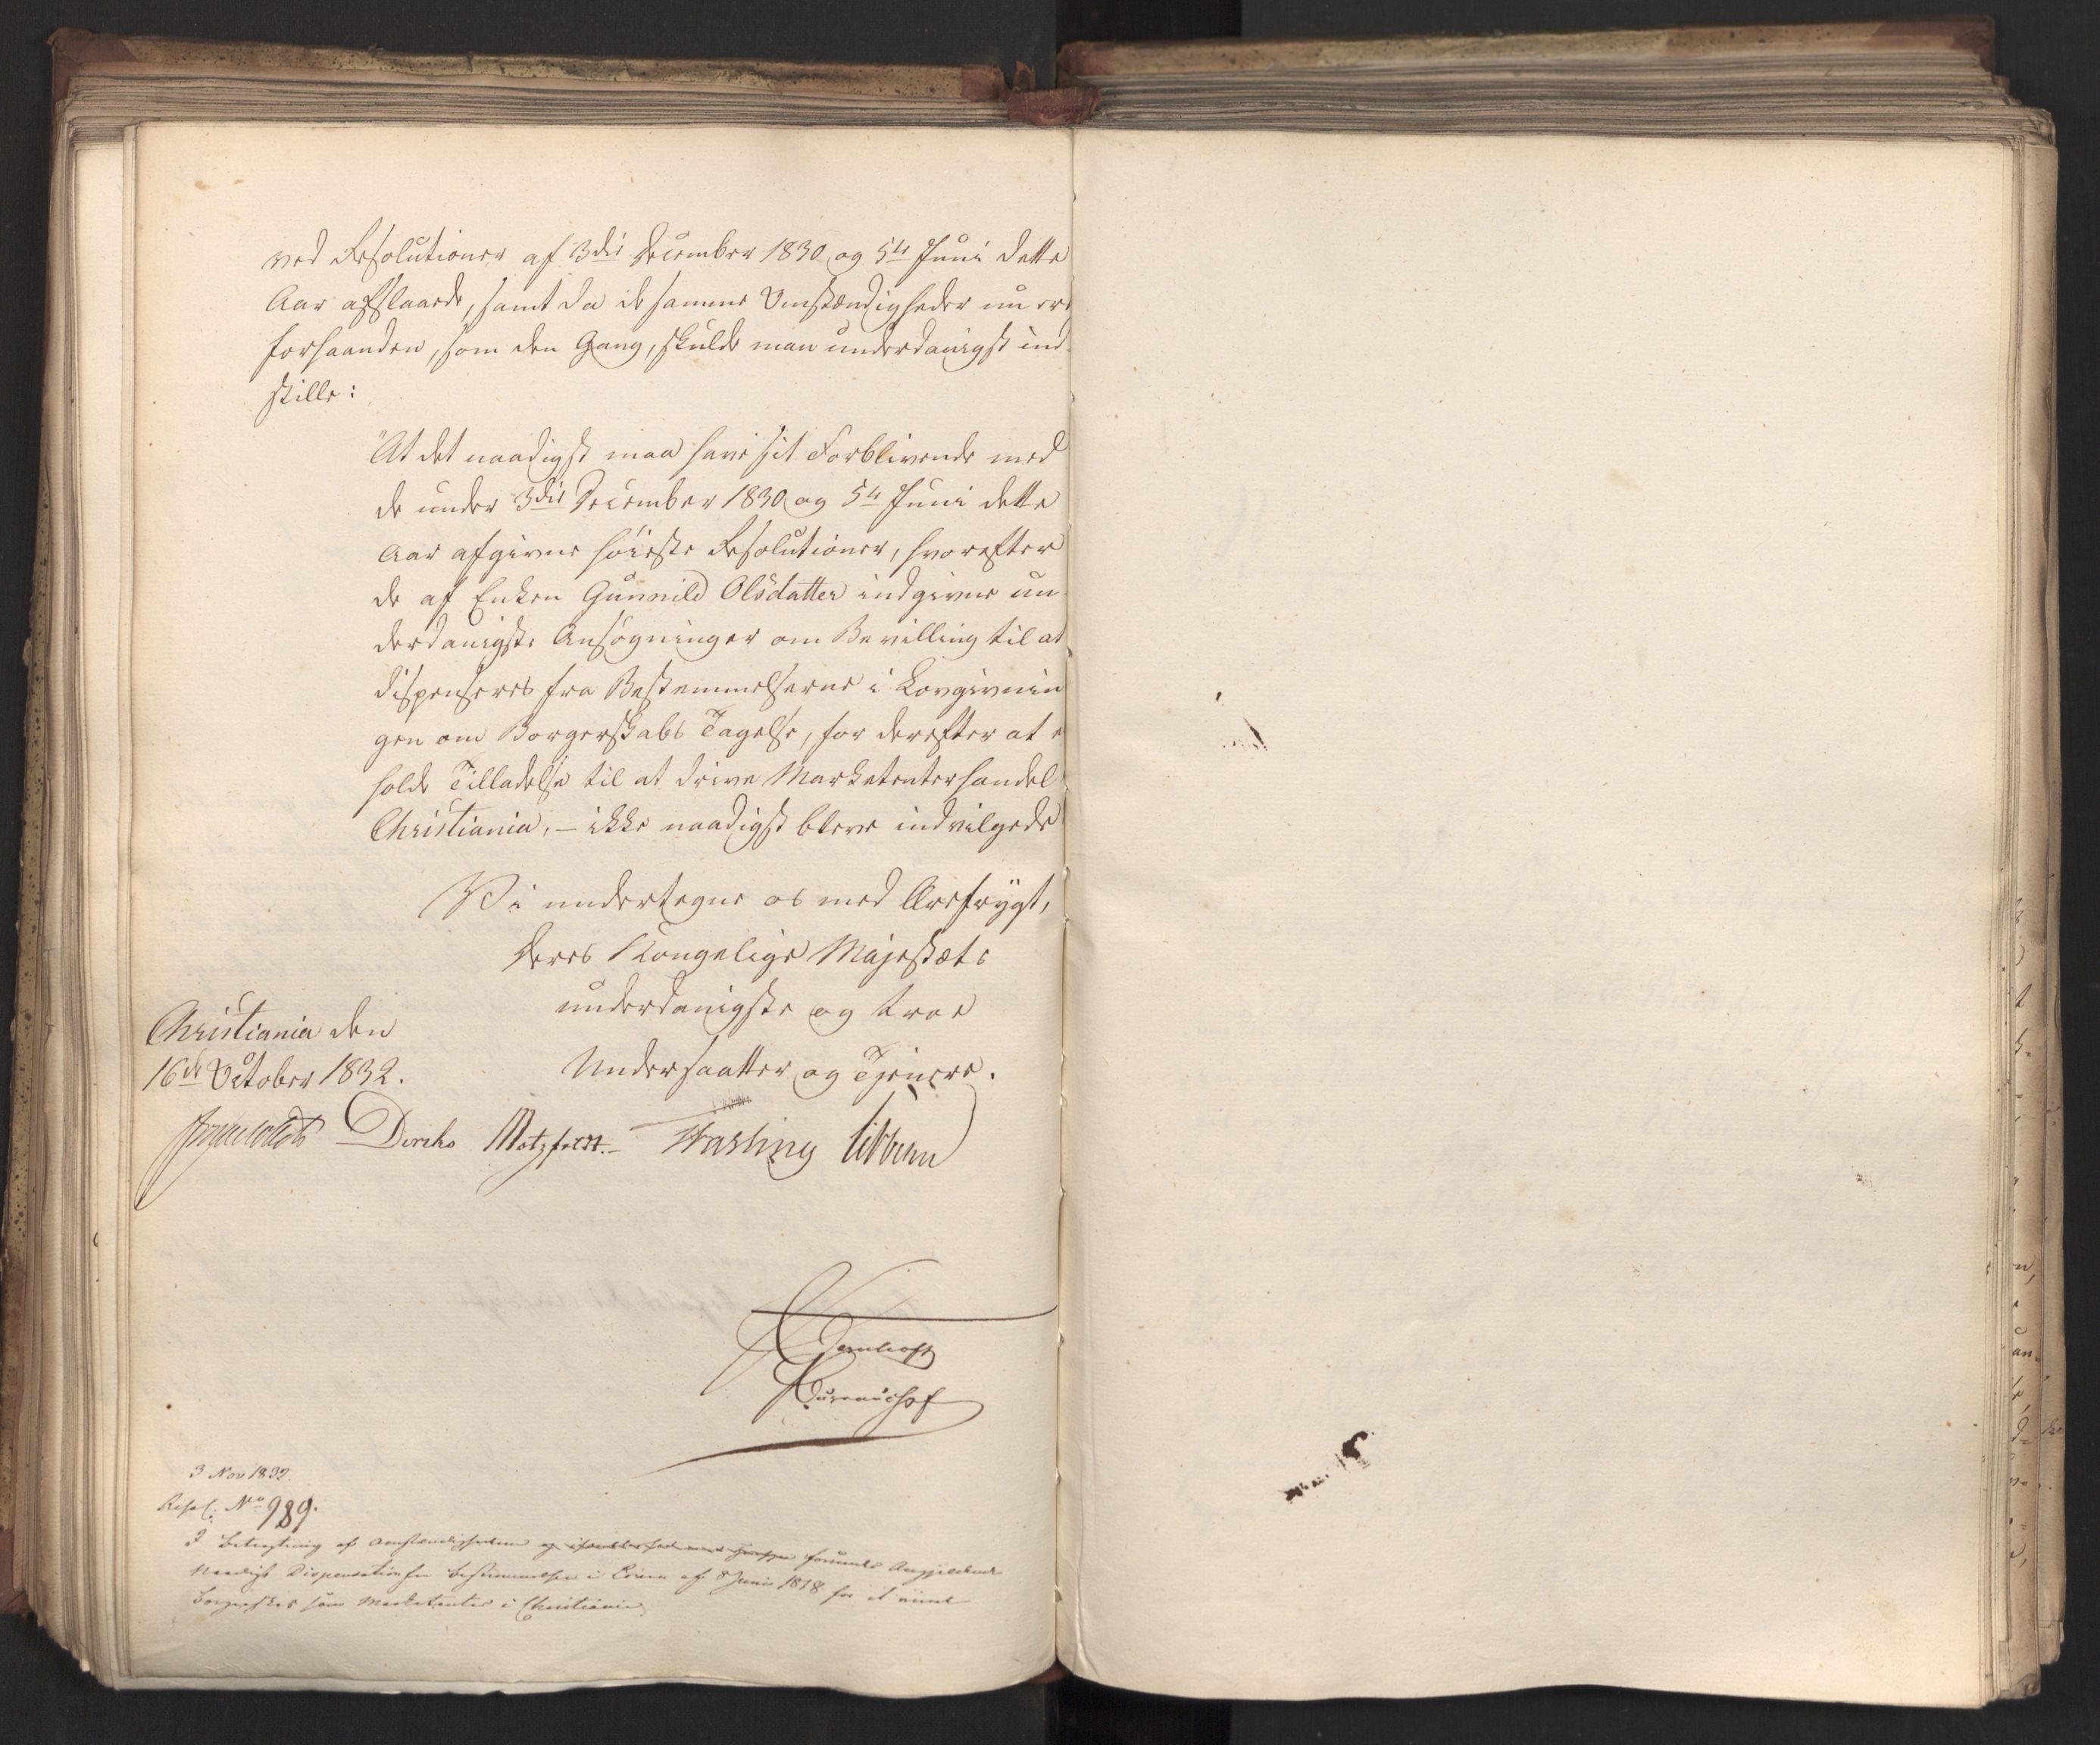 ved Resolutioner af 3die December 1830 og 5te Juni dette
Aar afslaaede, samt da de samme Omstændigheder nu ere
forhaanden, som den Gang, skulde man underdanigst ind
stille:
"At det naadigst maa have sit Forblivende med
de under 3die December 1830 og 5te Juni dette
Aar afgivne høieste Resolutioner, hvorefter
de af Enken Gunnild Olsdatter indgivne un
derdanigste Ansøgninger om Bevilling til at
dispenseres fra Bestemmelserne i Lovgivnin
gen om Borgerskabs Tagelse, for derefter at e
holde Tilladelse til at drive Marketenterhandel
Christiania, – ikke naadigst bleve indvilgede
Vi undertegne os med Ærefrygt,
Deres Kongelige Majestæts
underdanigste og troe
Undersaatter og Tjenere.
Christiania den
16de October 1832.
Diriks Motzfeldt. Fasting Vibe
3 Nov 1832.
Resol. No 989.
I Betragtning af Omstændighederne forundes Angjeldende
Naadigst Dispensation fra Bestemmelsen i Loven af 8 Juni 1818 for at vinde
Borgerskab som Marketenter i Christiania